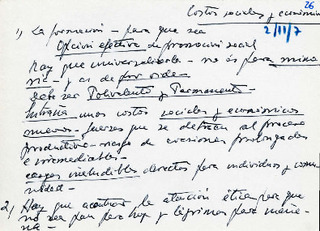 26
Costos sociales y económicos
2/11/7
1) La formación - para que sea
Opción efectiva de promoción social
hay que universalizarla - no es para mino
ría - y es de
debe ser Polivalente y Permanente
Entraña unos costos sociales y económicos
nuevos - fuerzas que se detraen al proceso
productivo - riesgo de evasiones prolongadas
e irremediables -
cargas ineludibles directas para individuos y comu
nidad -
2) Hay que acentuar la atención ética para que
no sea pan para hoy y lágrimas para maña
na -